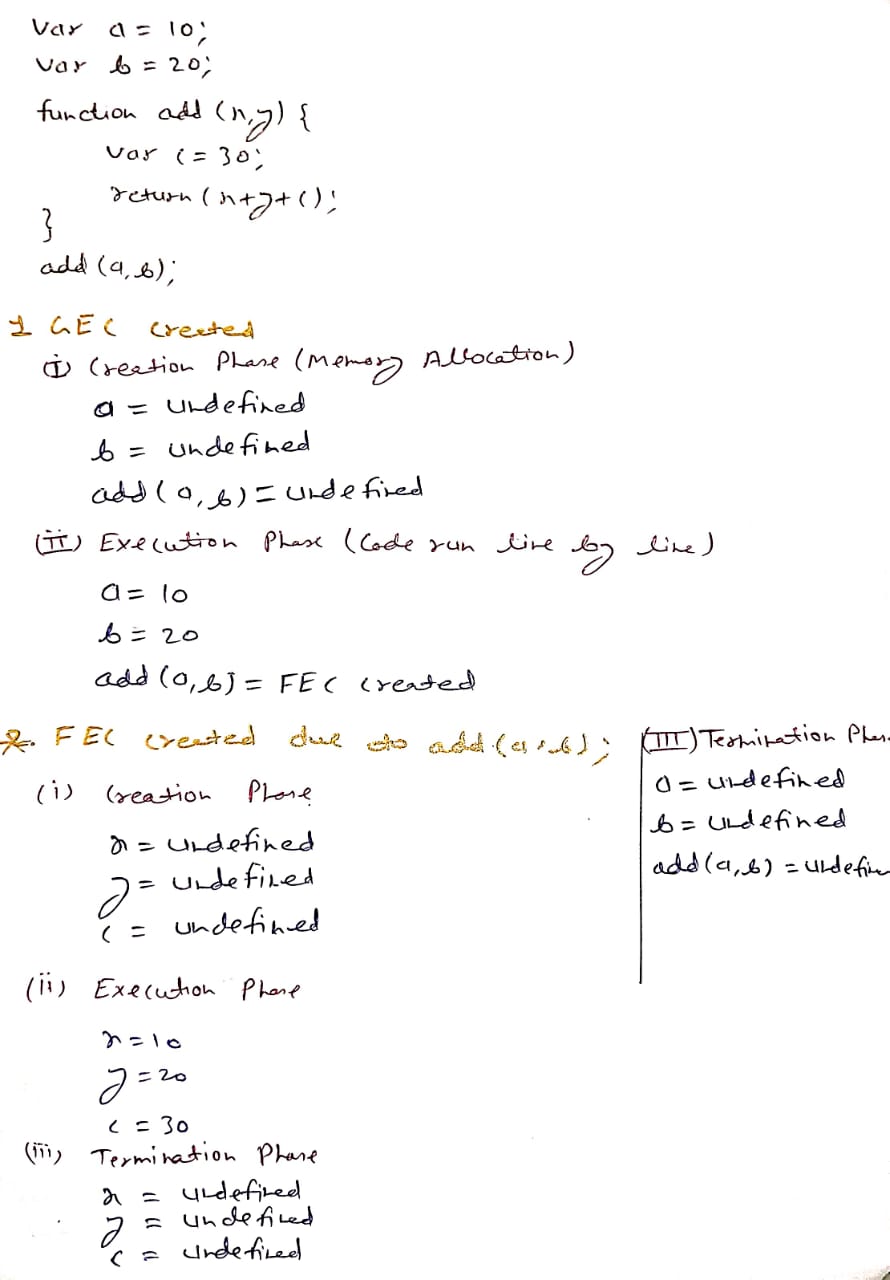 var a = 10;
var b = 20;
function add (x,y) {
var c = 30;
return (x+y+c);
}
add (a,b);
1 GEC created
(i) Creation Phase (Memory Allocation)
a = undefined
b = undefined
add (a,b) = undefined
(ii) Execution Phase (Code run line by line)
a = 10
b = 20
add (a,b) = FEC created
2. FEC created due to add (a,b);
(i) Creation Phase
x = undefined
y = undefined
c = undefined
(ii) Execution Phase
x = 10
y = 20
c = 30
(iii) Termination Phase
x = undefined
y = undefined
c = undefined
(III) Termination Phas
a = undefined
b = undefined
add (a,b) = undefine